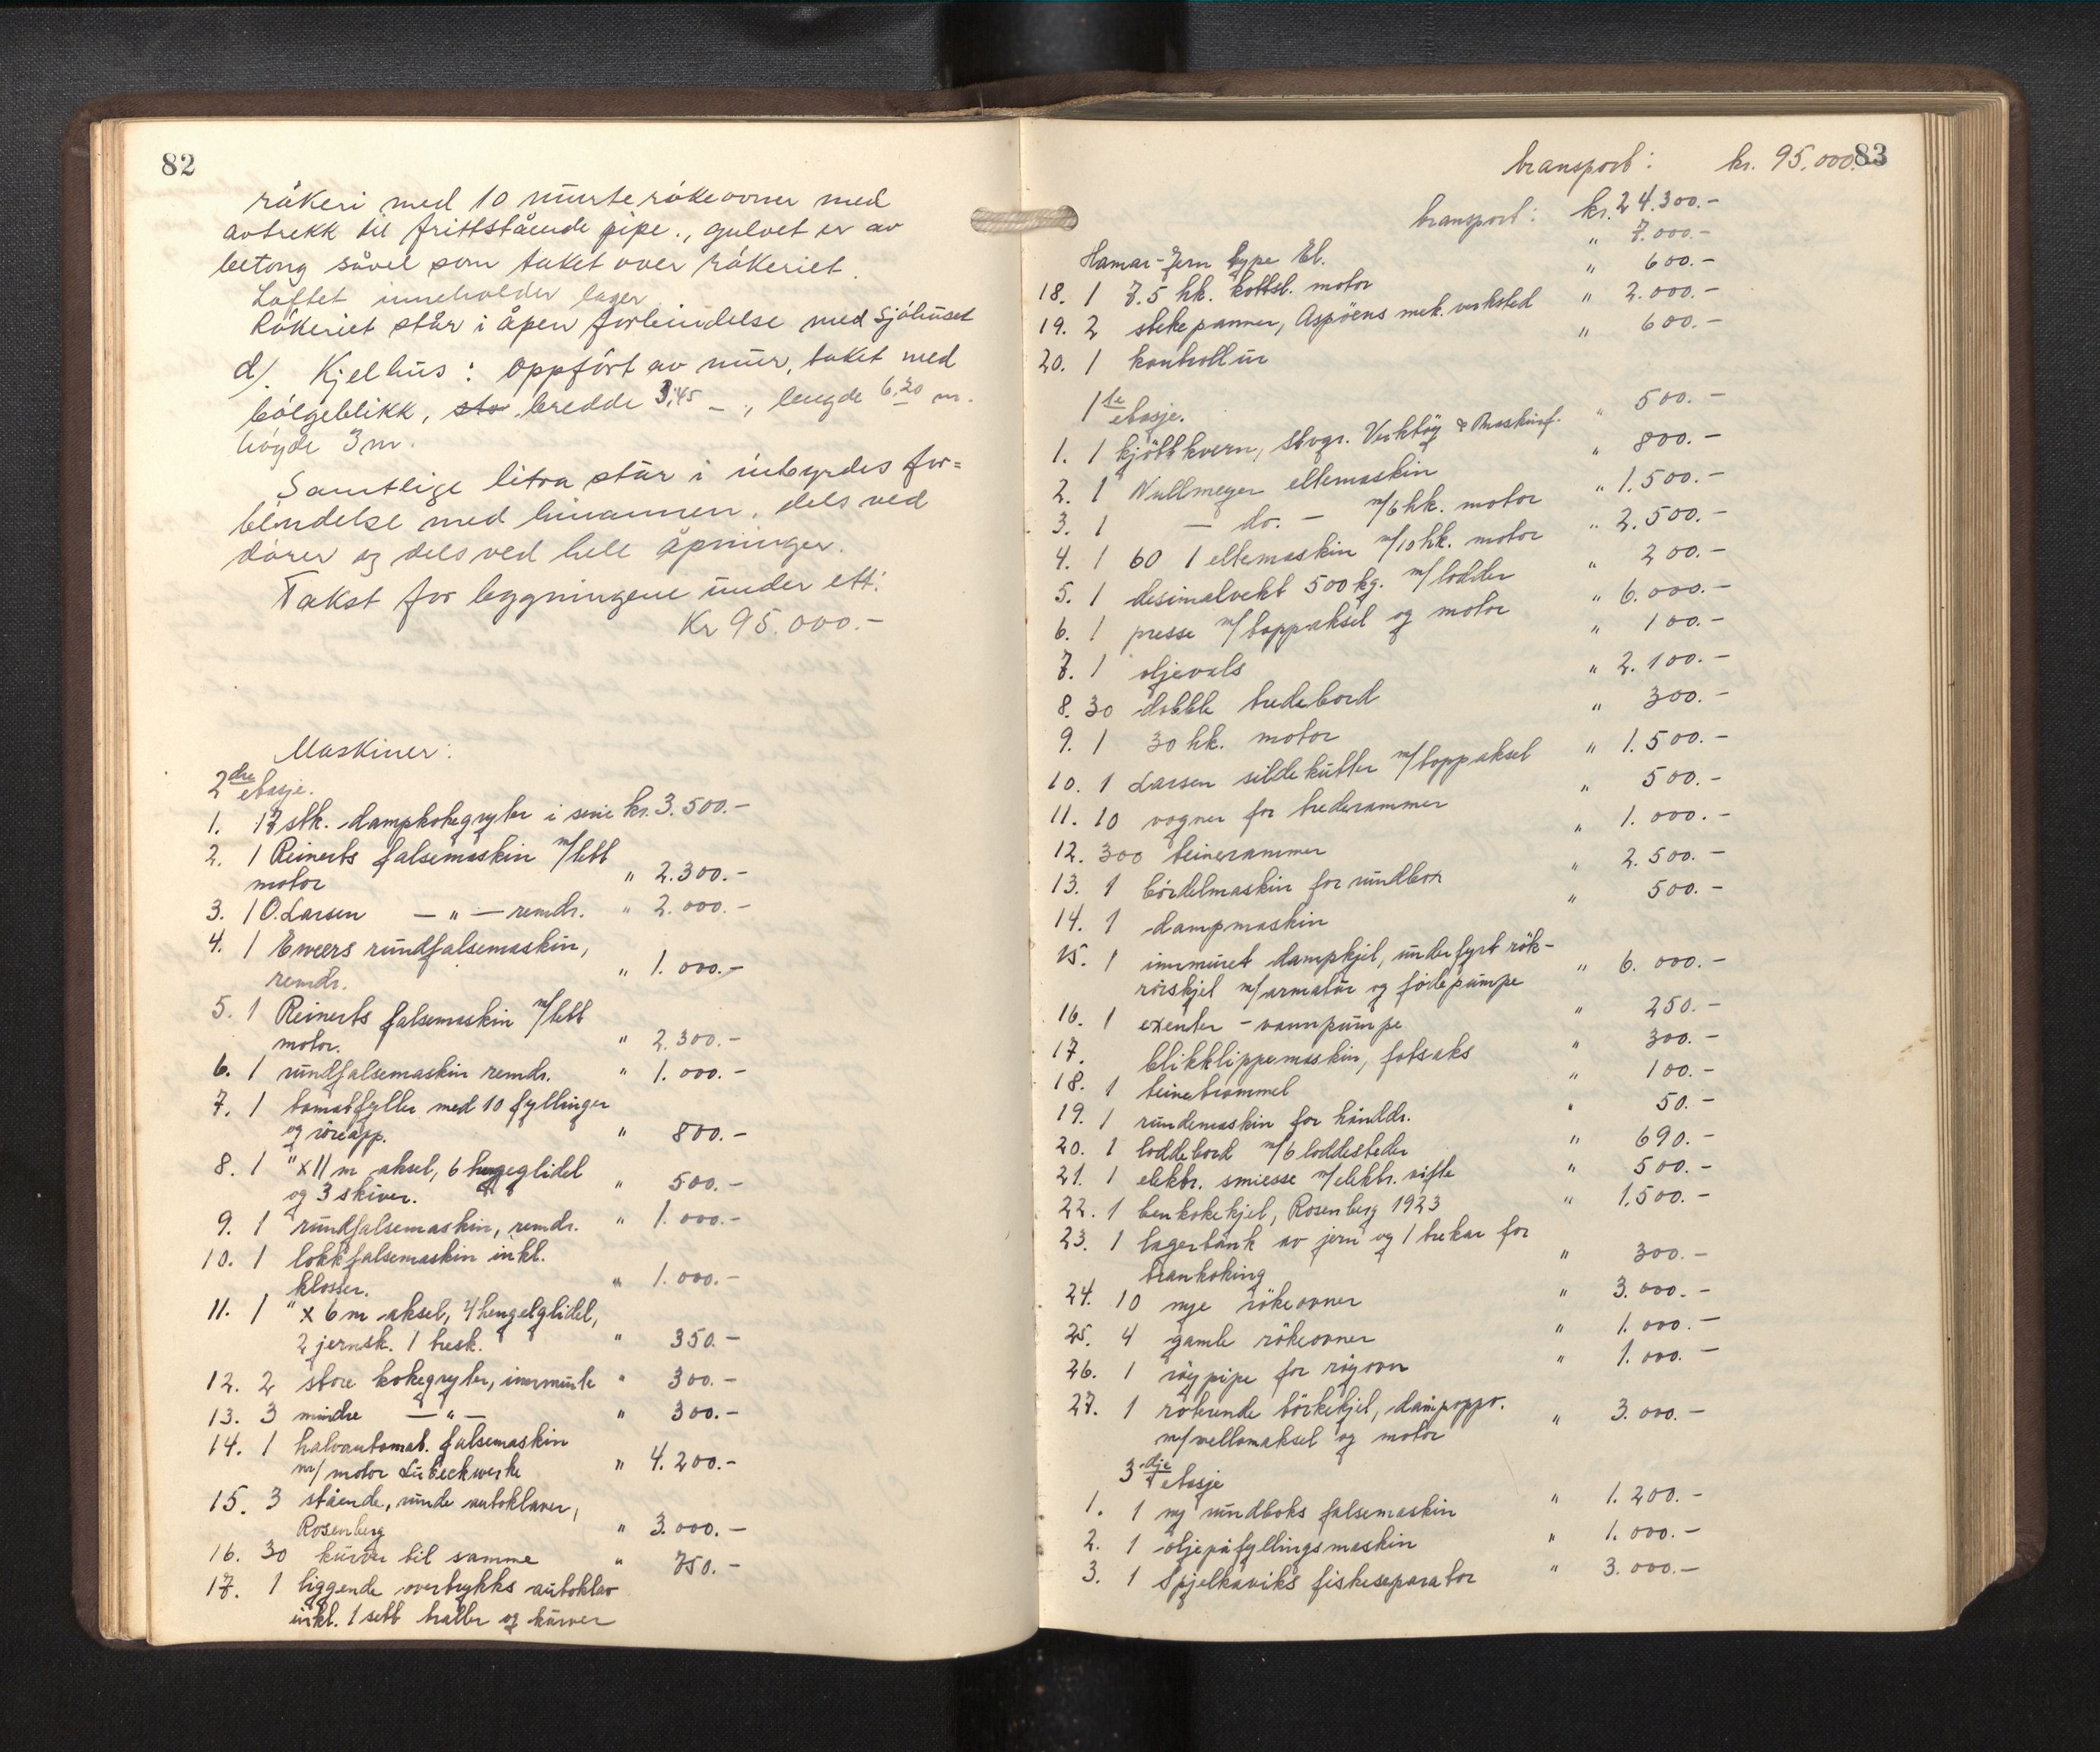 82
rökeri med 10 murte rökeovner med
avtrekk til frittstående pipe., gulvet er av
betong såvel som taket over rökeriet.
Loftet inneholder lager.
Rökeriet står i åpen forbindelse med sjöhuset
d). Kjelhus: oppfört av mur, taket med
bölgeblikk, bredde 3,45 - ., lengde 6,20 m.
höyde 3 m.
Samtlige litra står i inbyrdes for=
bindelse med hinannen, dels ved
dörer og dels ved hele åpninger.
Takst for byggningene under ett:
Kr 95.000.-
Maskiner:
2dre etasje.
1. 17 stk. dampkokegryter i serie kr. 3.500.-
2. 1 Reinerts falsemaskin m/tett
motor " 2.300.-
3. 1 O. Larsen — " — remdr. " 2.000.-
4. 1 Eweers rundfalsemaskin,
remdr. " 1.000.-
5. 1 Reinerts falsemaskin m/tett
motor. " 2.300.-
6. 1 rundfalsemaskin remdr. " 1.000.-
7. 1 tomatfyller med 10 fyllinger
og röreapp. " 800.-
8. 1 " x 11 m aksel, 6 hengeglidel
og 3 skiver. " 500.-
9. 1 rundfalsemaskin, remdr. " 1.000.-
10. 1 lokkfalsemaskin inkl.
klosser. " 1.000.-
11. 1 " x 6 m aksel, 4 hengelglidel,
2 jernsk. 1 tresk. " 350.-
12. 2 store kokegryter, innmurte " 300.-
13. 3 mindre — " — " 300.-
14. 1 halvautomat. falsemaskin
m/ motor Lübeckwerke " 4.200.-
15. 3 stående, runde autoklaver,
Rosenberg " 3.000.-
16. 30 kurver til samme " 750.-
17. 1 liggende overtrykks autoklav
inkl. 1 sett traller og kurver
83
transport: kr. 95.000
transport: kr. 24.300.-
Hamar-Jern type El. " 7.000.-
18. 1 7.5 hk. kottsl. motor " 600.-
19. 2 stekepanner, Aspöens mek. verksted " 2.000.-
20. 1 kontrollur " 600.-
1ste etasje.
1. 1 kjöttkvern, Stvgr. Verktöy & Maskinf. " 500.-
2. 1 Nullmeyer eltemaskin " 800.-
3. 1 — do. — m/6 hk. motor " 1.500.-
4. 1 60 l eltemaskin m/10 hk. motor " 2.500.-
5. 1 desimalvekt 500 kg. m/lodder " 200.-
6. 1 presse m/toppaksel og motor " 6.000.-
7. 1 oljevals " 100.-
8. 30 dobble tredebord " 2.100.-
9. 1 30 hk. motor " 300.-
10. 1 Larsen sildekutter m/toppaksel " 1.500.-
11. 10 vogner for trederammer " 500.-
12. 300 teinerammer " 1.000.-
13. 1 bördelmaskin for rundbox " 2.500.-
14. 1 dampmaskin " 500.-
15. 1 innmuret dampkjel, underfyrt rök-
rörskjel m/armatur og födepumpe " 6.000.-
16. 1 exenter - vannpumpe " 250.-
17. blikklippemaskin, fotsaks " 300.-
18. 1 teinetrommel " 100.-
19. 1 rundemaskin for hånddr. " 50.-
20. 1 loddebord m/6 loddesteder " 690.-
21. 1 elektr. smiesse m/elektr. vifte " 500.-
22. 1 benkokekjel, Rosenberg 1923 " 1.500.-
23. 1 lagertank av jern og 1 trekar for
trankoking " 300.-
24. 10 nye rökeovner " 3.000.-
25. 4 gamle rökeovner " 1.000.-
26. 1 röypipe for röyovn " 1.000.-
27. 1 roterende törkekjel, dampoppv.
m/vellomaksel og motor " 3.000.-
3dje etasje
1. 1 ny rundboks falsemaskin " 1.200.-
2. 1 oljepåfyllingsmaskin " 1.000.-
3. 1 Spjelkaviks fiskeseparator " 3.000.-